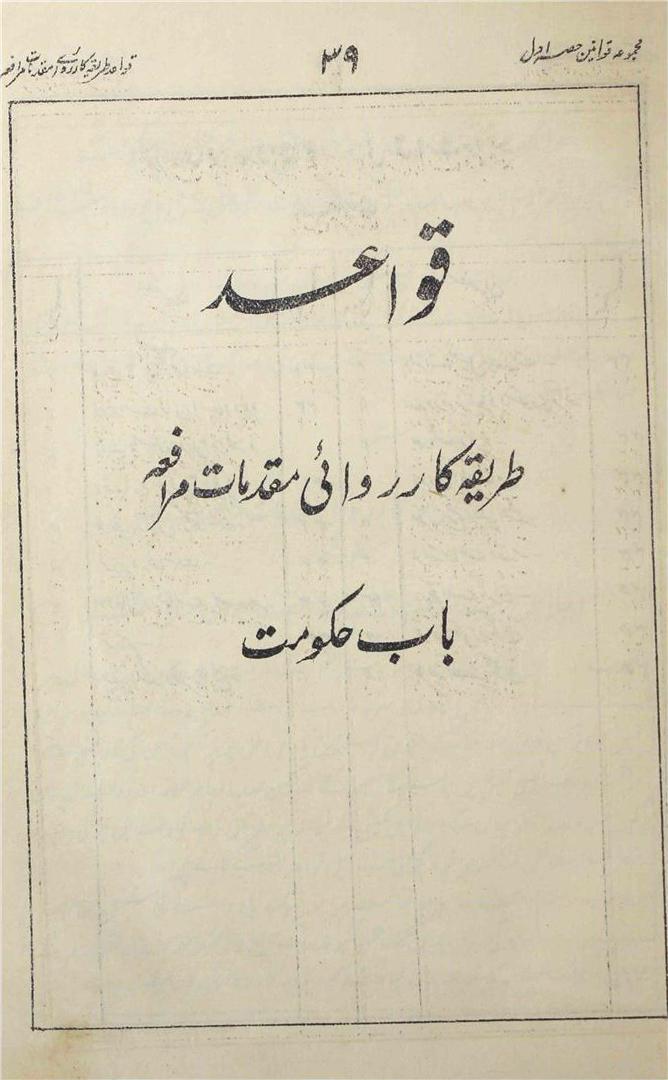 مجموعہ قوانین حصہ اول
۳۹
قواعد طریقہ کارروائی مقدمات مرافعہ
قواعد
طریقہ کارروائی مقدمات مرافعہ
باب حکومت